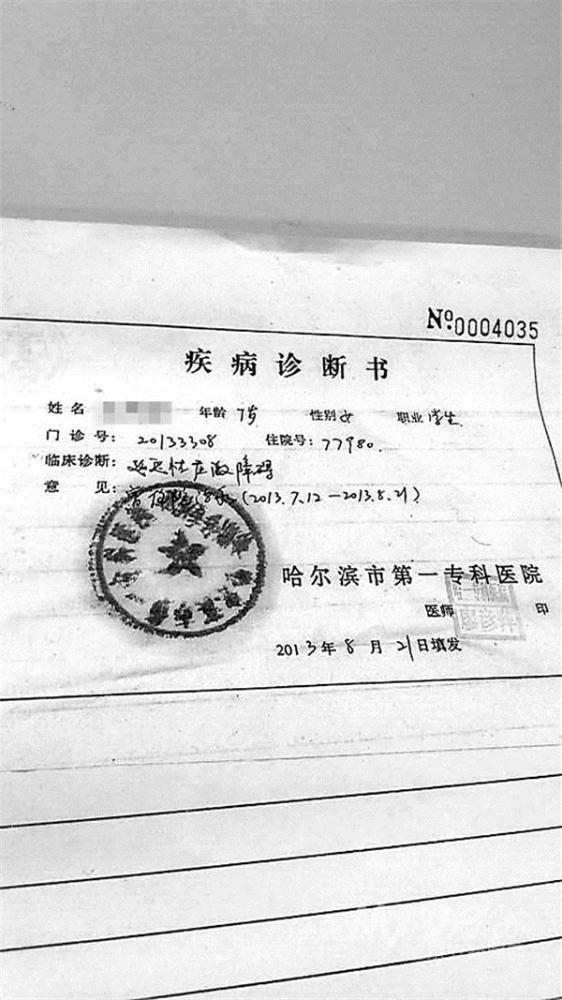 №0004035
疾病诊断书
姓名 年龄 7岁 性别 女 职业 学生
门诊号: 20133308 住院号: 77980
临床诊断: 延迟性应激障碍
意 见: 曾住院治疗 (2013.7.12—2013.8.21)
哈尔滨市第一专科医院
医师 印
2013年8月21日填发